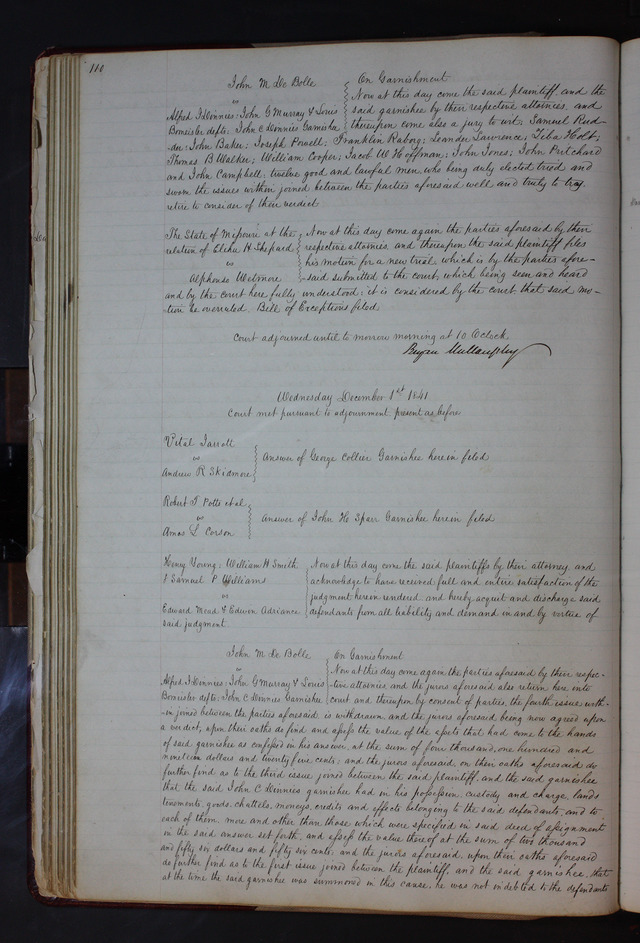 110
John M De Bolle
vs
Alfred J Dennies; John G Murray & Louis
Bomeisler defts; John C Dennies Garnishee
On Garnishment
Now at this day come the said plaintiff and the
said garnishee by their respective attornies, and
thereupon come also a jury to wit, Samuel Reed
der John Baker; Joseph Powell; Franklin Raborg; Leander Lawrence; Ziba Holt;
Thomas B Walker; William Cooper; Jacob W Hoffman; John Jones; John Pritchard
and John Campbell; twelve good and lawful men who being duly elected tried and
sworn the issues within joined between the parties aforesaid well and truly to try
retire to consider of their verdict
The State of Missouri at the
relation of Elihu H Shepard
vs
Alphonso Wetmore
Now at this day come again the parties aforesaid by their
respective attornies, and thereupon the said plaintiff files
his motion for a new trial, which is by the parties afore-
said submitted to the court, which being seen and heard
and by the court here fully understood; it is considered by the court that said mo-
tion be overruled. Bill of Exceptions filed
Court adjourned until to morrow morning at 10 OClock
Bryan Mullanphy
Wednesday December 1st 1841
Court met pursuant to adjournment present as before
Vital Jarrott
vs
Andrew R Skidmore
Answer of George Collier Garnishee herein filed
Robert T Potts et al
vs
Amos L Corson
Answer of John H Sparr Garnishee herein filed
Henry Young; William H Smith
& Samuel P Williams
vs
Edward Mead & Edwin Adriance
Now at this day come the said plaintiffs by their attorney and
acknowledge to have received full and entire satisfaction of the
judgment herein rendered and hereby acquit and discharge said
defendants from all liability and demand in and by virtue of
said judgment
John M De Bolle
vs
Alfred J Dennies; John G Murray & Louis
Bomeisler defts; John C Dennies Garnishee
On Garnishment
Now at this day come again the parties aforesaid by their respec-
tive attornies, and the jurors aforesaid also return here into
court and thereupon by consent of parties, the fourth issue with-
in joined between the parties aforesaid is withdrawn and the jurors aforesaid being now agreed upon
a verdict, upon their oaths do find and assess the value of the assets that had come to the hands
of said garnishee as confessed in his answer, at the sum of four thousand, one hundred and
nineteen dollars and twenty five cents; and the jurors aforesaid, on their oaths aforesaid do
further find as to the third issue joined between the said plaintiff and the said garnishee
that the said John C Dennies garnishee had in his possession custody and charge, lands
tenements, goods, chattels, moneys, credits and effects belonging to the said defendants, and to
each of them, more and other than those which were specified in said deed of assignment
in the said answer set forth, and assess the value thereof at the sum of two thousand
and fifty six dollars and fifty six cents; and the jurors aforesaid, upon their oaths aforesaid
do further find as to the first issue joined between the plaintiff, and the said garnishee, that
at the time the said garnishee was summoned in this cause, he was not indebted to the defendants